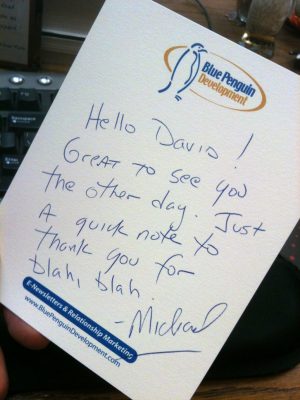 Blue Penguin
Development
Hello David!
Great to see you
the other day. Just
a quick note to
thank you for
blah, blah.
-Michael
E-Newsletters & Relationship Marketing
www.BluePenguinDevelopment.com